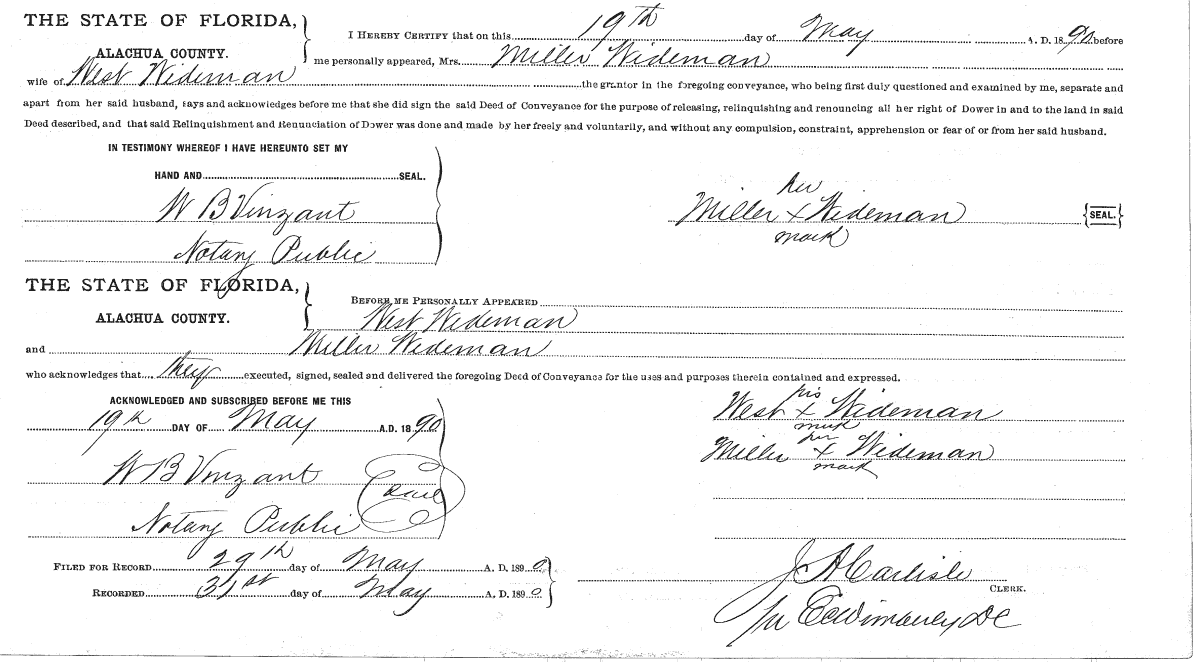 THE STATE OF FLORIDA,
ALACHUA COUNTY.
I HEREBY CERTIFY that on this 19th day of May A. D. 1890 before
me personally appeared, Mrs. Miller Wideman
wife of West Wideman the grantor in the foregoing conveyance, who being first duly questioned and examined by me, separate and
apart from her said husband, says and acknowledges before me that she did sign the said Deed of Conveyance for the purpose of releasing, relinquishing and renouncing all her right of Dower in and to the land in said
Deed described, and that said Relinquishment and Renunciation of Dower was done and made by her freely and voluntarily, and without any compulsion, constraint, apprehension or fear of or from her said husband.
IN TESTIMONY WHEREOF I HAVE HEREUNTO SET MY
HAND AND SEAL.
W B Vinzant
Notary Public
her
Miller x Wideman {SEAL.}
mark
THE STATE OF FLORIDA,
ALACHUA COUNTY.
BEFORE ME PERSONALLY APPEARED
West Wideman
and Miller Wideman
who acknowledges that they executed, signed, sealed and delivered the foregoing Deed of Conveyance for the uses and purposes therein contained and expressed.
ACKNOWLEDGED AND SUBSCRIBED BEFORE ME THIS
19th DAY OF May A.D. 1890
W B Vinzant
Notary Public
Seal
his
West x Wideman
mark
her
Miller x Wideman
mark
FILED FOR RECORD 29th day of May A. D. 1890
RECORDED 31st day of May A. D. 1890
J A Carlisle
CLERK.
DC